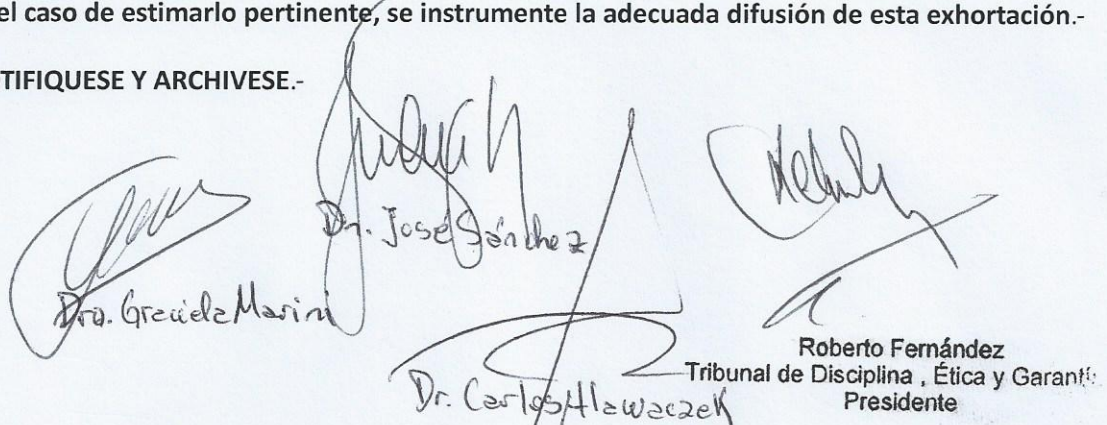 el caso de estimarlo pertinente, se instrumente la adecuada difusión de esta exhortación.-
TIFIQUESE Y ARCHIVESE.-
Dr. José Sánchez
Dra. Graciela Marini
Dr. Carlos Hlawaczek
Roberto Fernández
Tribunal de Disciplina , Ética y Garantí
Presidente